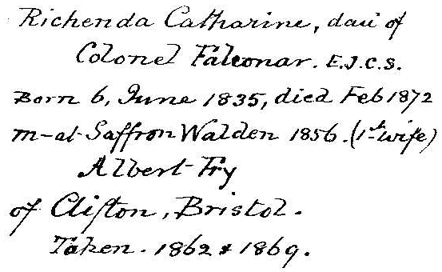 Richenda Catharine, dau of
Colonel Falconar. E.I.C.S.
Born 6, June 1835, died Feb 1872
m-at-Saffron Walden 1856. (1st wife)
Albert Fry
of Clifton, Bristol.
Taken. 1862 & 1869.